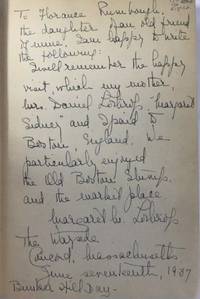 To Florance Rumbough,
the daughter of an old friend
of mine, I am happy to write
the following:
I well remember the happy
visit, which my mother,
Mrs. Daniel Lothrop, "Margaret
Sidney" and I paid to
Boston, England. We
particularly enjoyed
the Old Boston Stump,
and the market place
Margaret M. Lothrop
The Wayside
Concord, Massachusetts
June seventeenth, 1937
Bunker Hill Day.